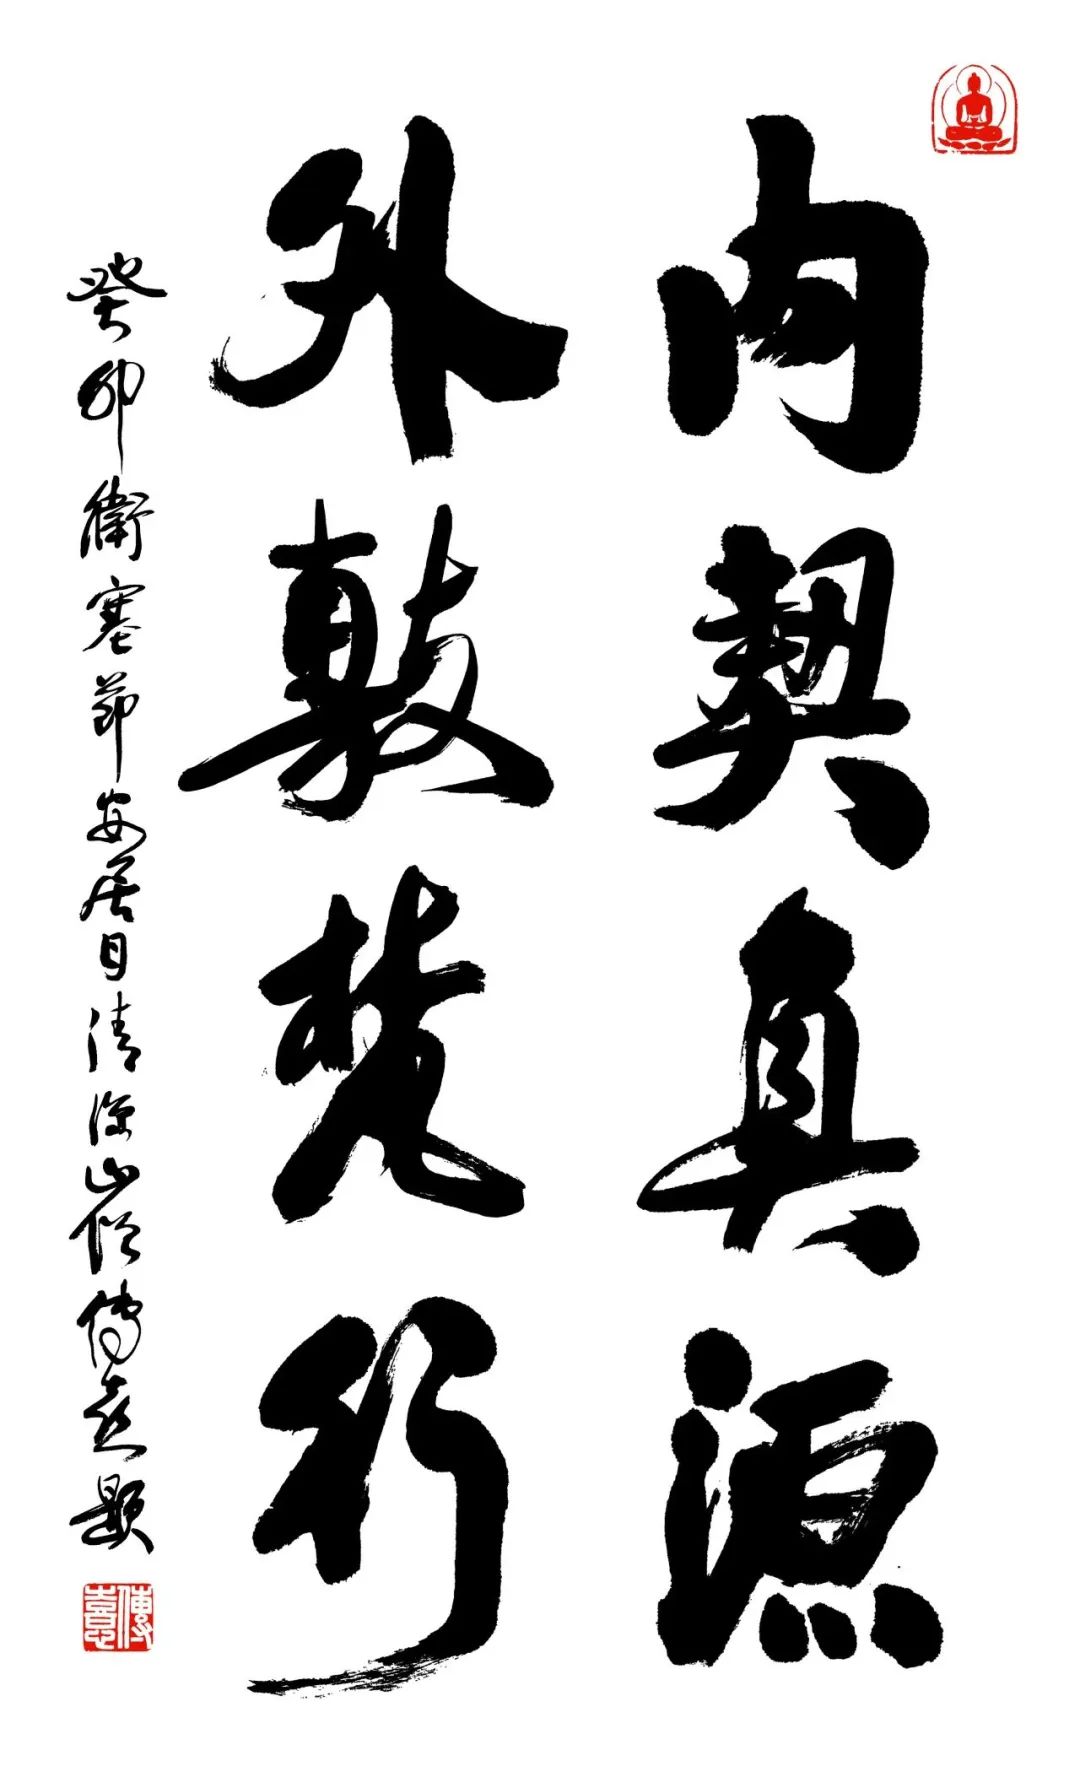 内契真源
外敷梵行
癸卯衛塞節安居日清涼山僧傳憙題
傳憙